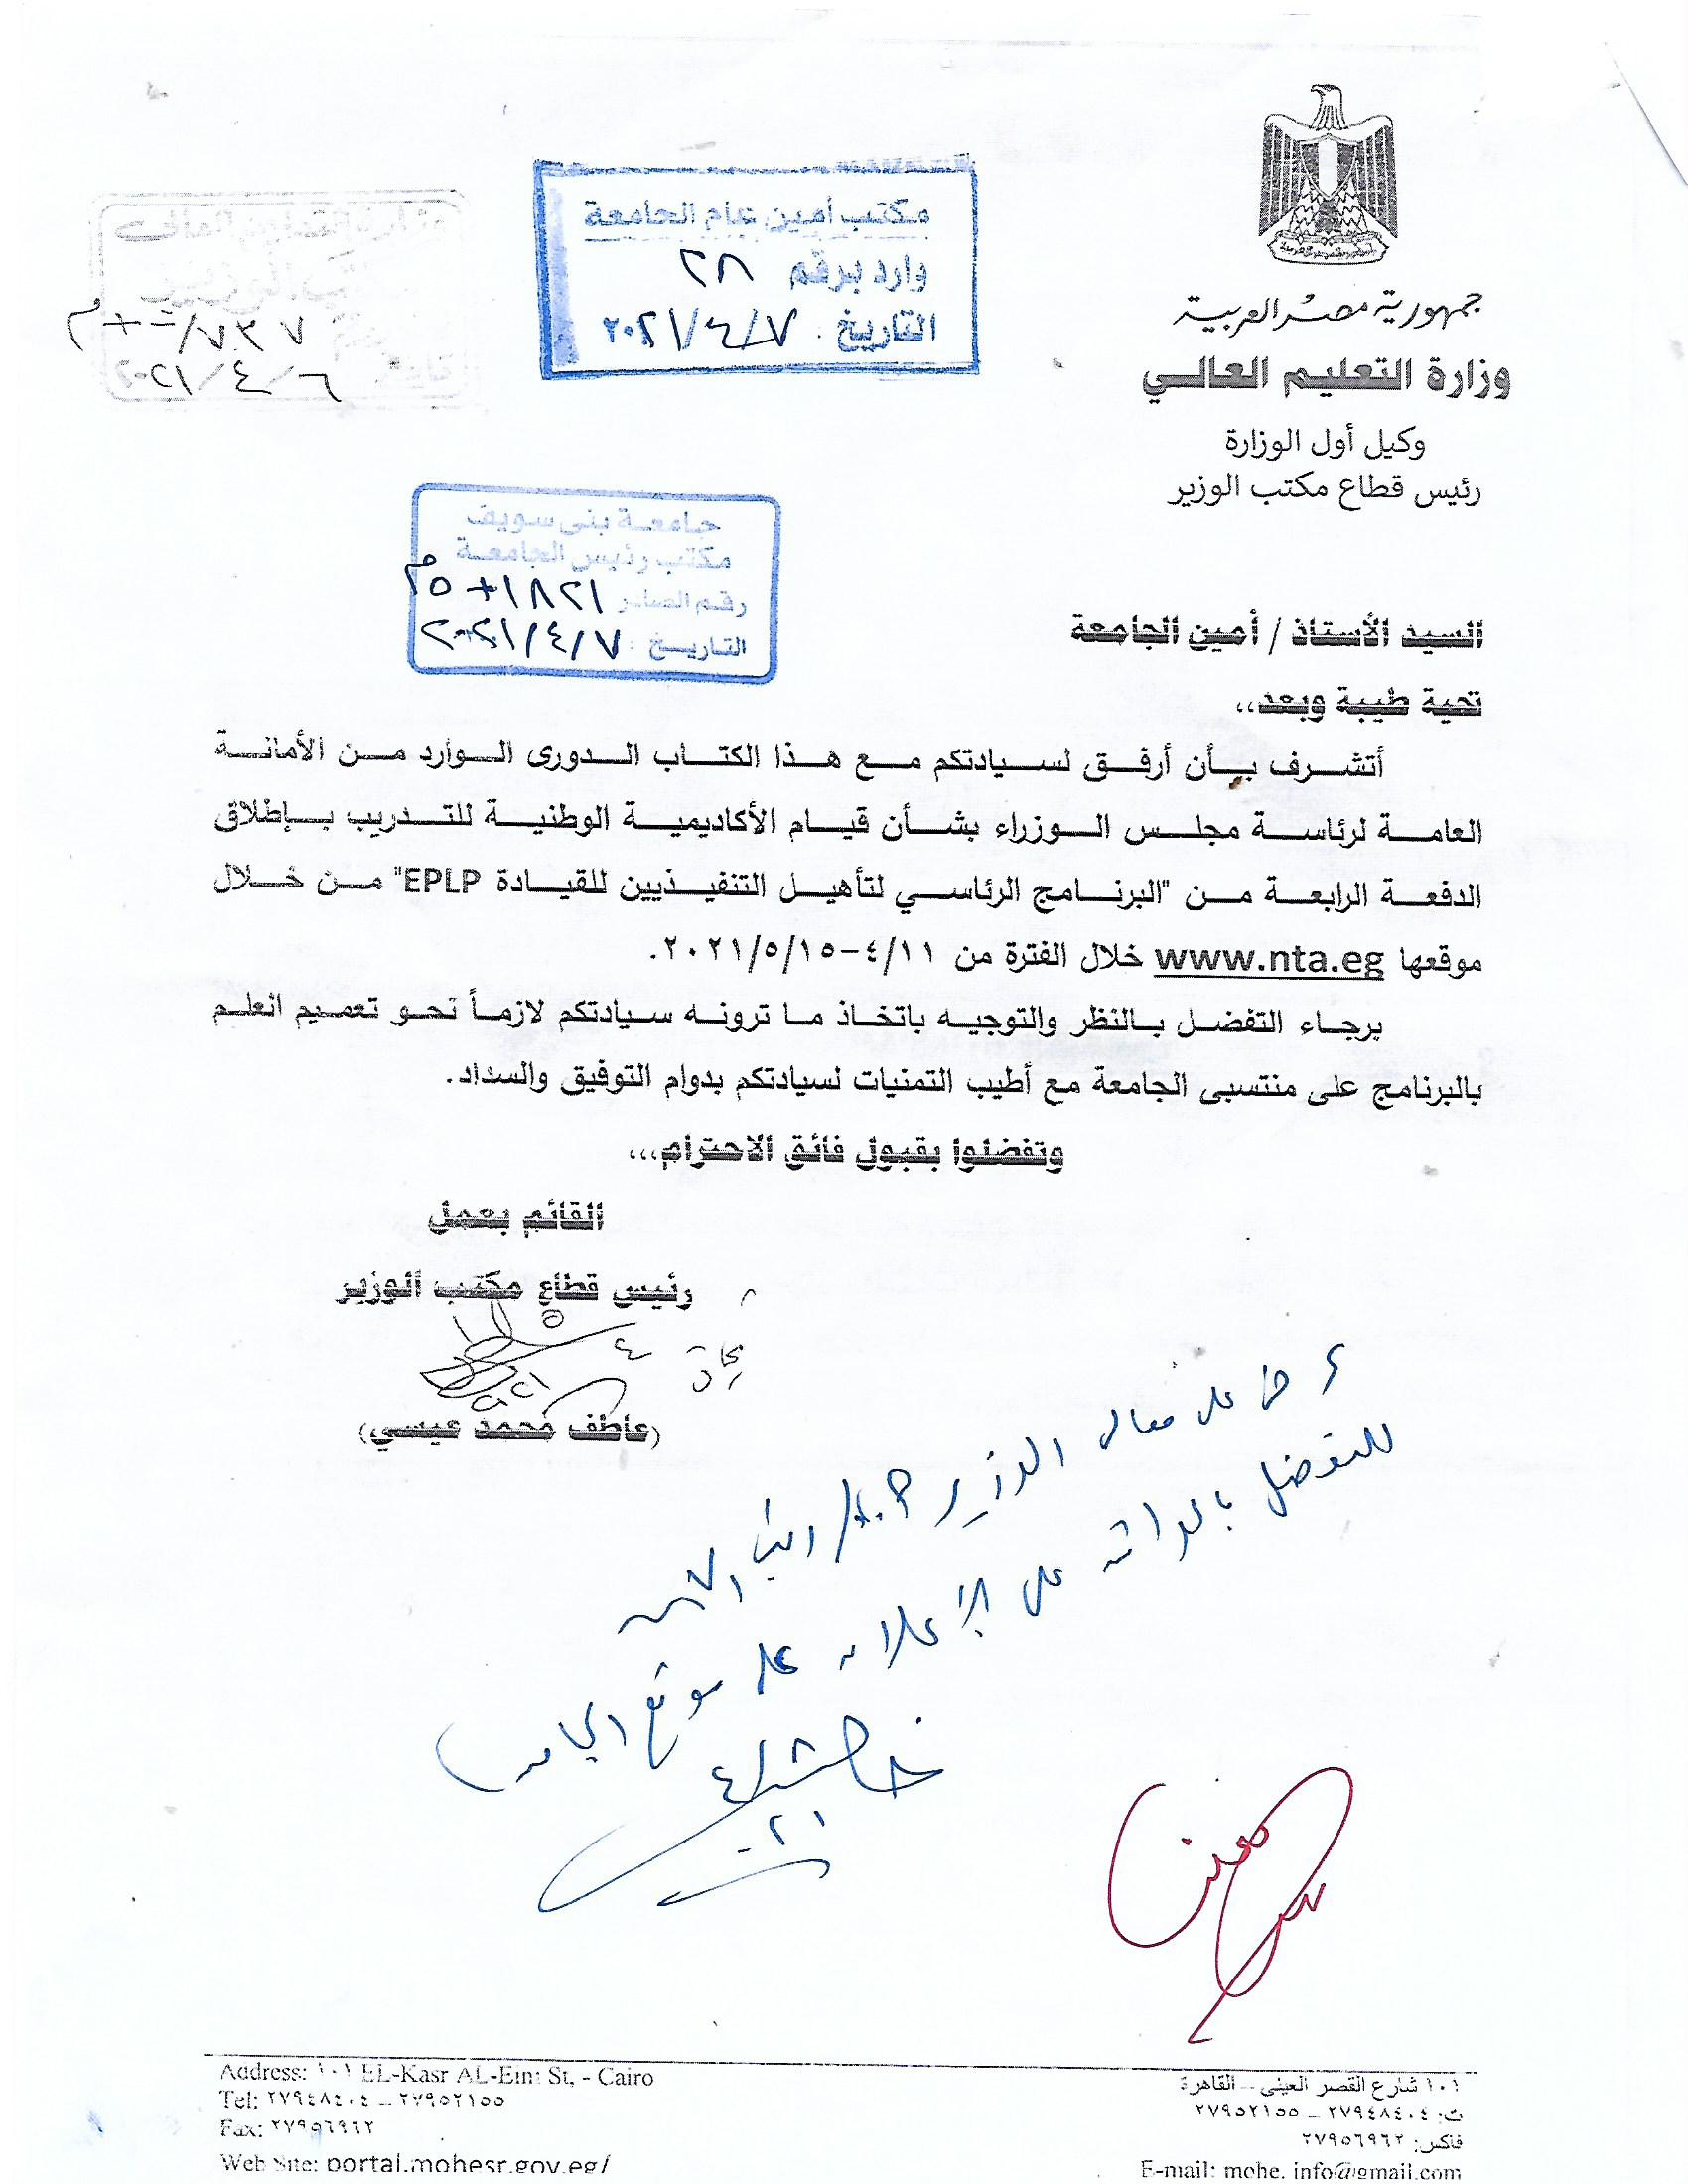 جمهورية مصر العربية
وزارة التعليم العالي
وكيل أول الوزارة
رئيس قطاع مكتب الوزير
مكتب أمين عام الجامعة
وارد برقم ٢٨
التاريخ: ٢٠٢١/٤/٧
٢٠٢١/٤/٦
جامعة بنى سويف
مكتب رئيس الجامعة
رقم الصادر ١٨٢١+٥م
التاريخ: ٢٠٢١/٤/٧
السيد الأستاذ / أمين الجامعة
تحية طيبة وبعد،،
أتشرف بأن أرفق لسيادتكم مع هذا الكتاب الدورى الوارد من الأمانة
العامة لرئاسة مجلس الوزراء بشأن قيام الأكاديمية الوطنية للتدريب بإطلاق
الدفعة الرابعة من "البرنامج الرئاسي لتأهيل التنفيذيين للقيادة EPLP" من خلال
موقعها www.nta.eg خلال الفترة من ٤/١١-٢٠٢١/٥/١٥.
يرجاء التفضل بالنظر والتوجيه باتخاذ ما ترونه سيادتكم لازماً نحو تعميم العلم
بالبرنامج على منتسبى الجامعة مع أطيب التمنيات لسيادتكم بدوام التوفيق والسداد.
وتفضلوا بقبول فائق الاحترام،،،
القائم بعمل
رئيس قطاع مكتب الوزير
(عاطف محمد عيسي)
للتفضل بالموافقة على الإعلان على موقع الجامعة
١٠١ شارع القصر العينى – القاهرة
ت: ٢٧٩٤٨٤٠٤ – ٢٧٩٥٢١٥٥
فاكس: ٢٧٩٥٦٩٦٢
E-mail: mohe. info@gmail.com
Address: ١٠١ EL-Kasr AL-Eini St, - Cairo
Tel: ٢٧٩٤٨٤٠٤ – ٢٧٩٥٢١٥٥
Fax: ٢٧٩٥٦٩٦٢
Web Site: portal.mohesr.gov.eg/